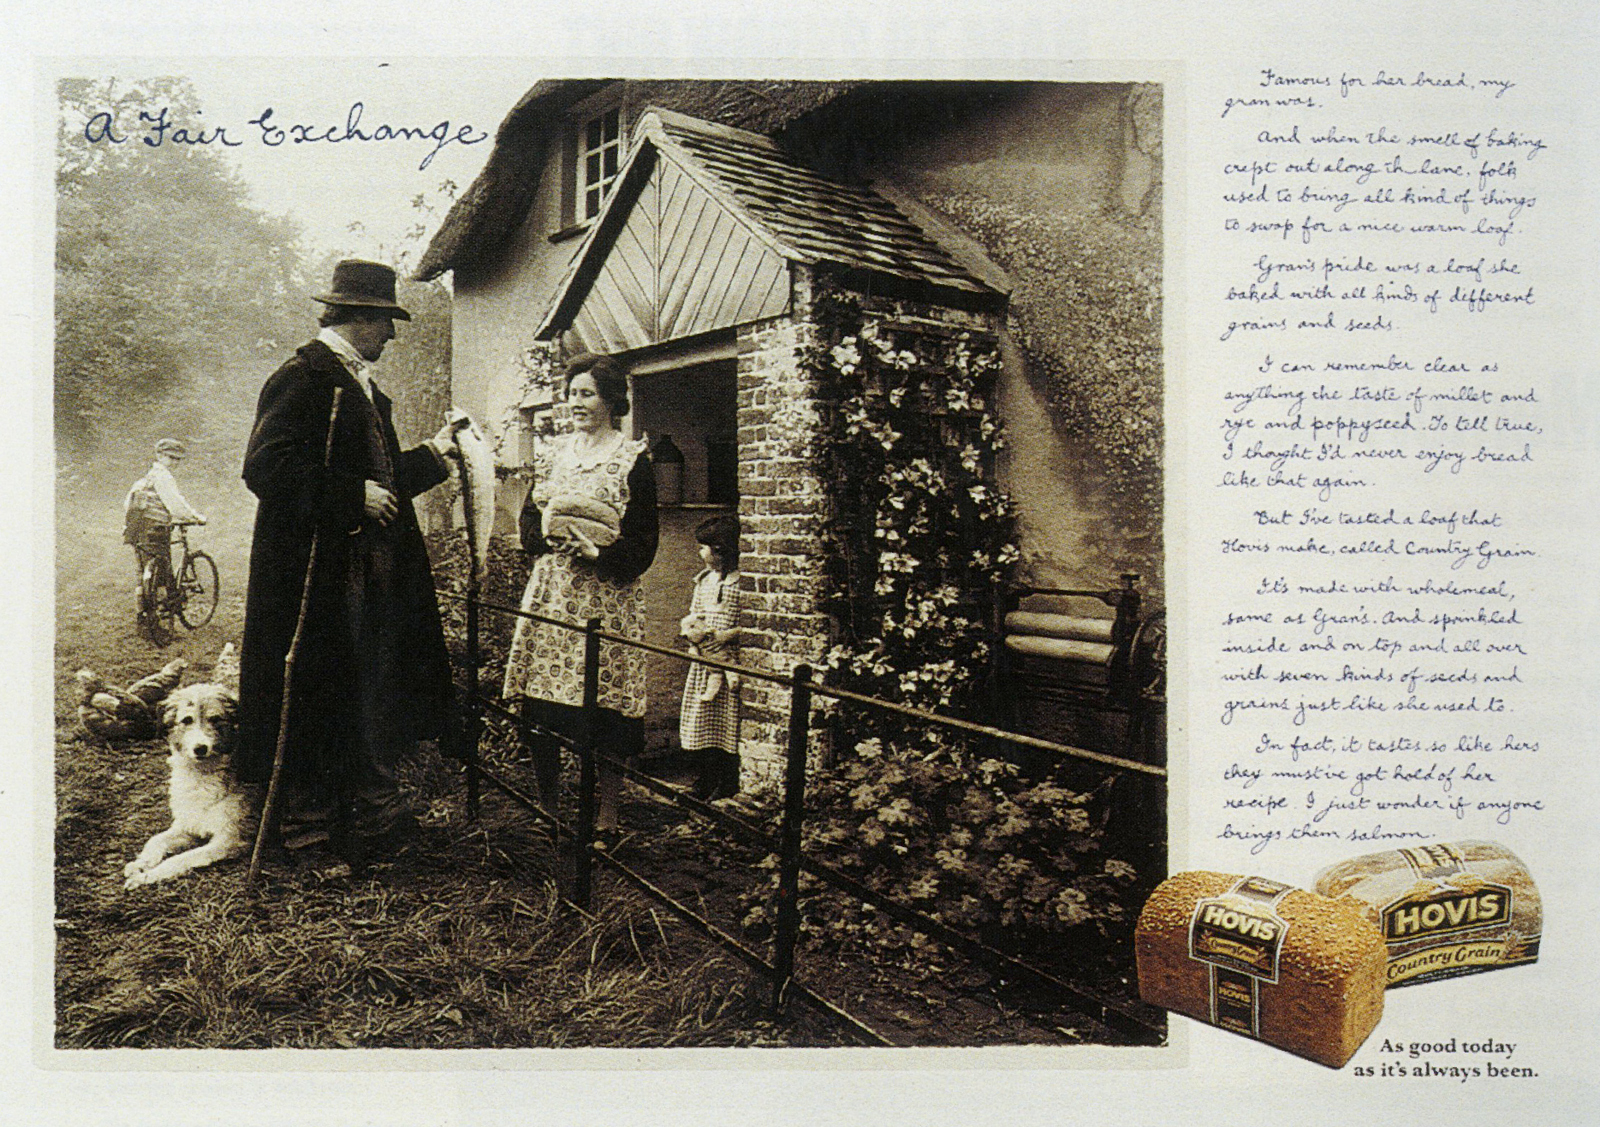 A Fair Exchange
Famous for her bread, my
gran was.
And when the smell of baking
crept out along th lane, folk
used to bring all kind of things
to swap for a nice warm loaf.
Gran's pride was a loaf she
baked with all kinds of different
grains and seeds.
I can remember clear as
anything the taste of millet and
rye and poppyseed. To tell true,
I thought I'd never enjoy bread
like that again.
But I've tasted a loaf that
Hovis make, called Country Grain.
It's made with wholemeal,
same as Gran's. And sprinkled
inside and on top and all over
with seven kinds of seeds and
grains just like she used to.
In fact, it tastes so like hers
they must've got hold of her
recipe. I just wonder if anyone
brings them salmon.
HOVIS
Country Grain
HOVIS
HOVIS
Country Grain
As good today
as it's always been.